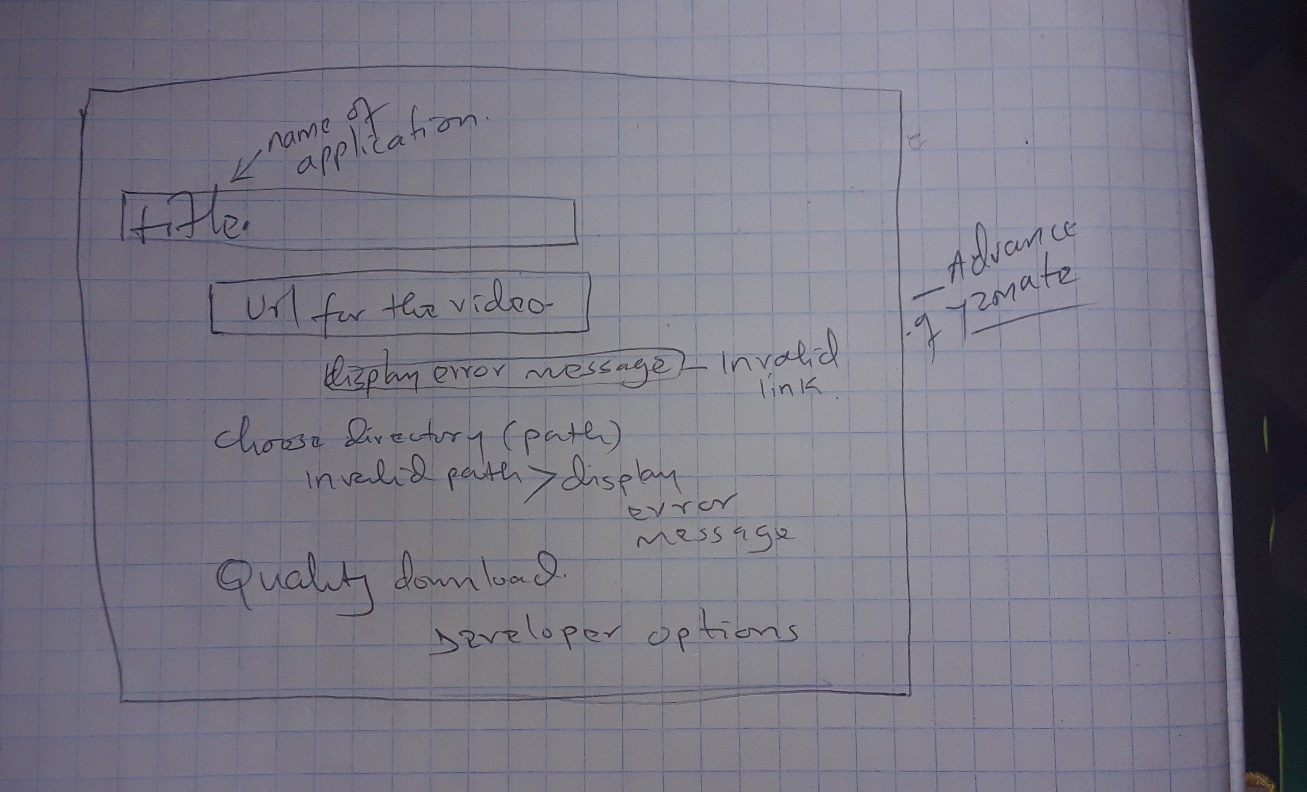 name of
application.
title.
Url for the video
display error message - Invalid
link.
choose directory (path)
invalid path > display
error
message
Quality download.
Developer options
- Advance